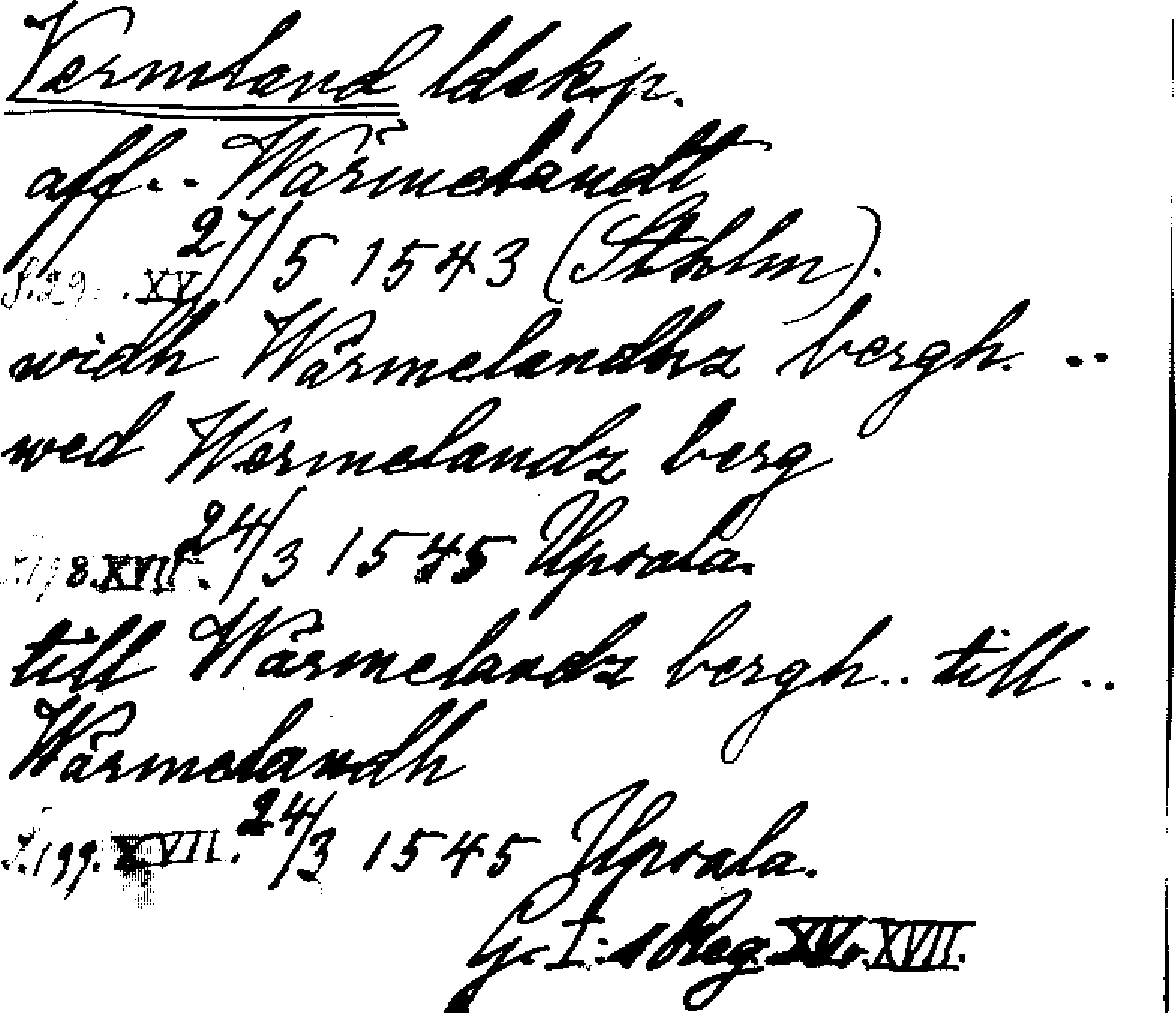 Vermland ldskp.
aff.. Wärmelandt
S. 29. XV. 27/5 1543 (Sthlm).
widh Wärmelandhz bergh. ..
wed Wermelandz berg
S. 198. XVII. 24/3 1545 Upsala.
till Wärmelandz bergh.. till ..
Wärmelandh
S. 199. XVII. 24/3 1545 Upsala.
G. I:s Reg. XV. XVII.